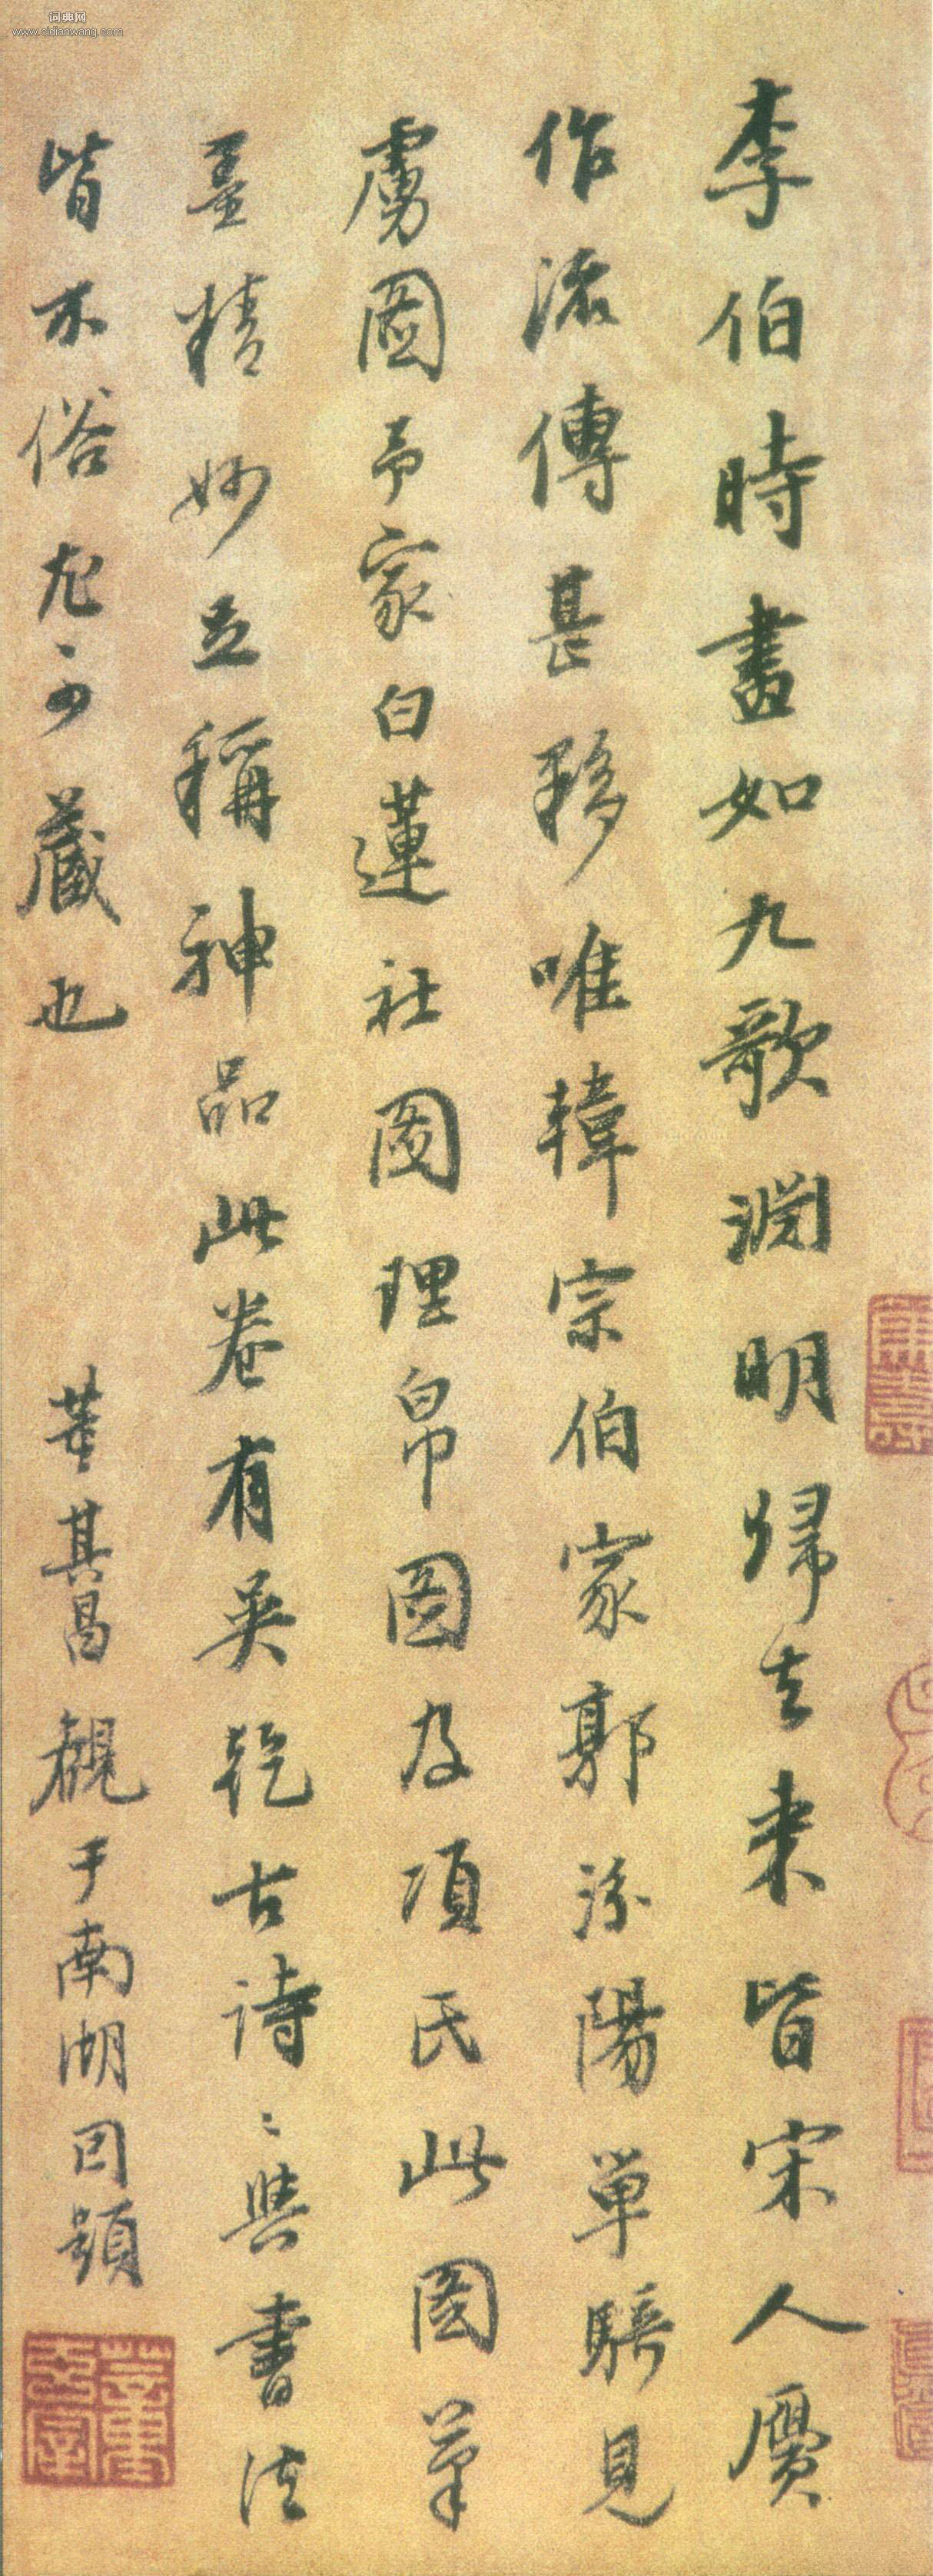 词典网
www.cidianwang.com
李伯時畫如九歌淵明歸去来皆宋人贋
作流傳甚夥唯韓宗伯家郭汾陽單騎見
虜圖予家白蓮社圖理帛圖及項氏此圖筆
墨精妙並稱神品此卷有吳説古詩〻與書法
皆不俗尤〻可藏也 董其昌觀于南湖因題